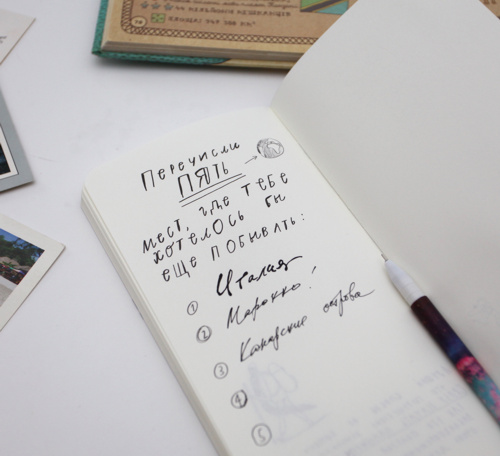 44 МЕЛЬЙОНИ МЕШКАНЦІВ
ПЕРЕЧИСЛИ
ПЯТЬ
МЕСТ, ГДЕ ТЕБЕ
ХОТЕЛОСЬ БЫ
ЕЩЕ ПОБЫВАТЬ:
1 Италия
2 Марокко!
3 Канарские острова
4
5